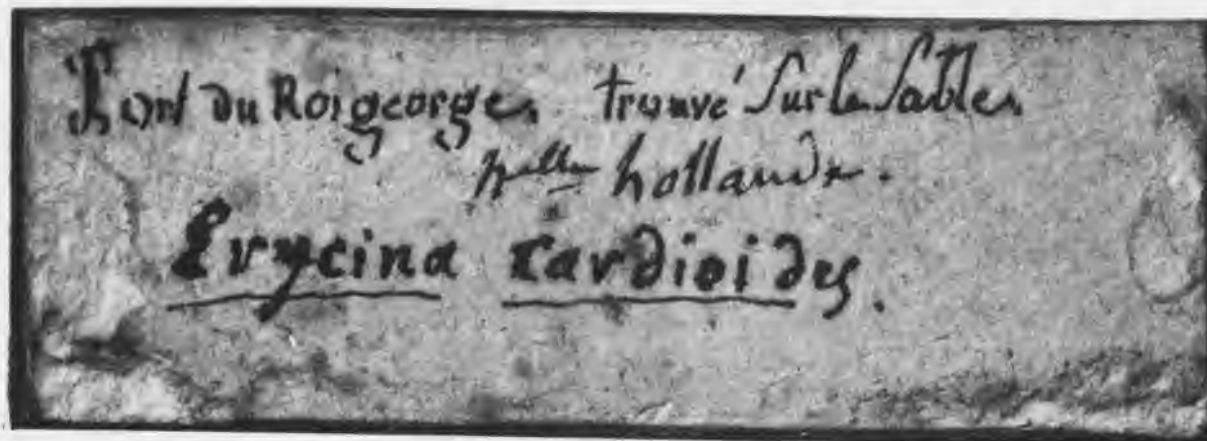 Port du Roi georges trouvé Sur le Sable
nlle hollande.
Erycina cardioides.